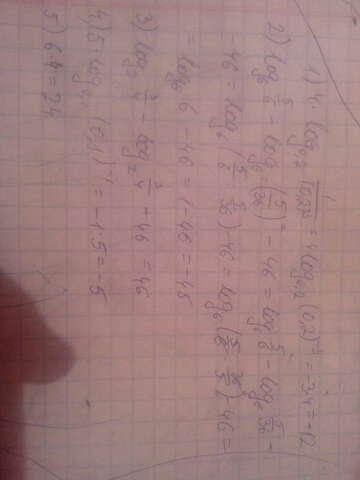 1) 4 · log₀,₂ 1/(0,2)³ = 4 log₀,₂ (0,2)⁻³ = -3·4 = -12
2) log₆ 5/6 - log₆ (5/36) - 46 = log₆ 5/6 - log₆ 5/36 -
-46 = log₆ (5/6 : 5/36) - 46 = log₆ (5/6 · 36/5) - 46 =
= log₆ 6 - 46 = 1 - 46 = -45
3) log₂ 3/4 - log₂ 3/4 + 46 = 46
4) 5 · log (0,1)⁻¹ = -1·5 = -5
5) 6·4 = 24